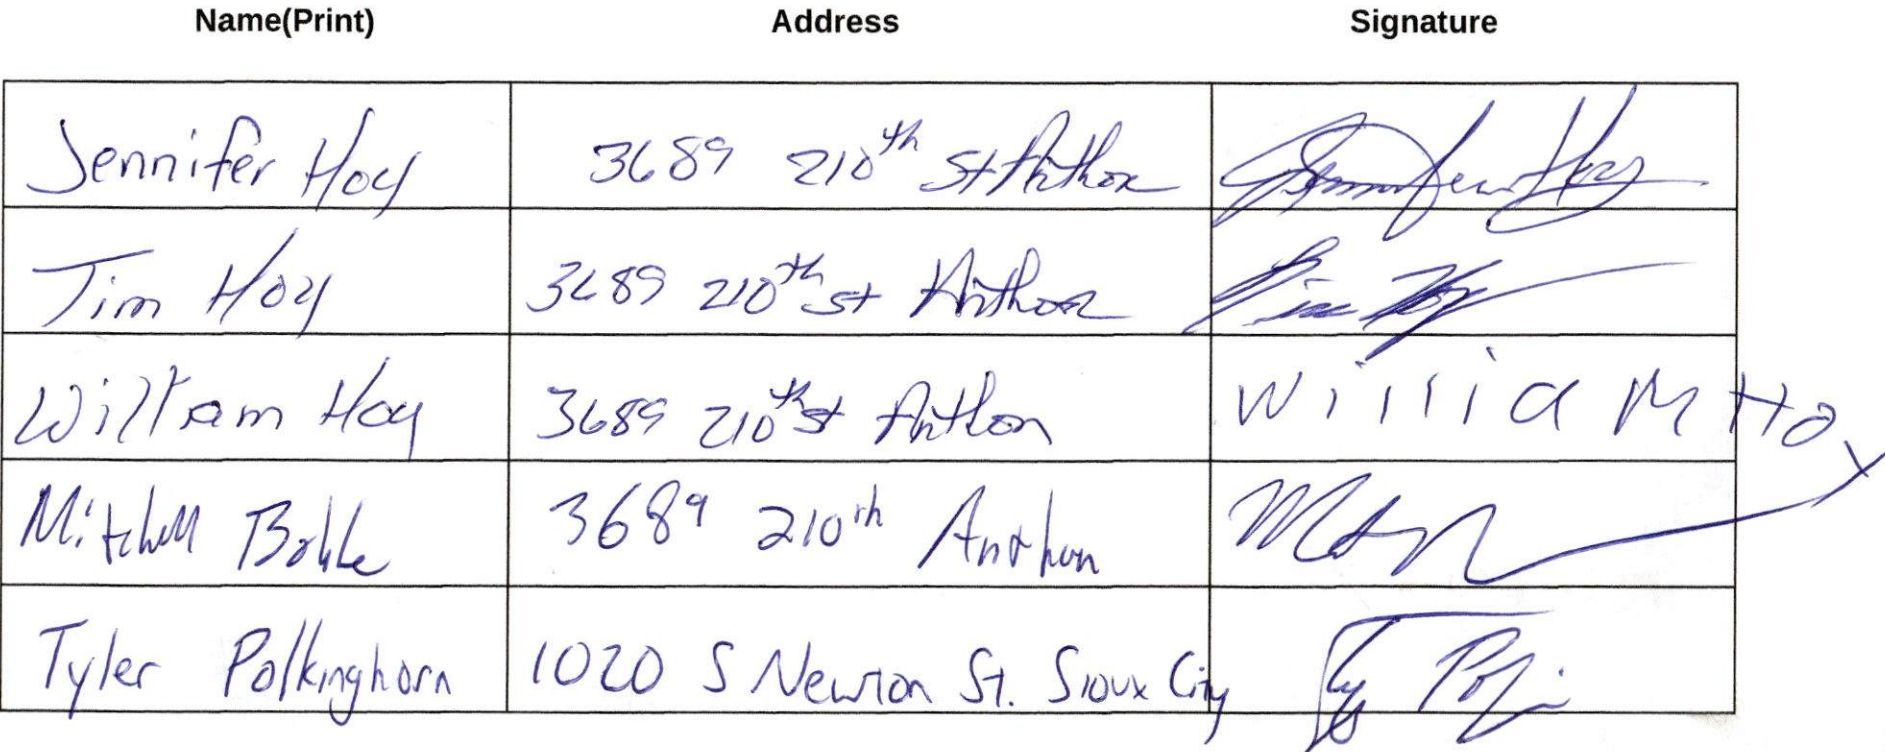 Name(Print) Address Signature
Jennifer Hoy 3689 210th St Anthon Jennifer Hoy
Tim Hoy 3689 210th St Anthon Tim Hoy
William Hoy 3689 210th St Anthon William Hoy
Mitchell 3689 210th Anthon
Tyler Polkinghorn 1020 S Newton St. Sioux City